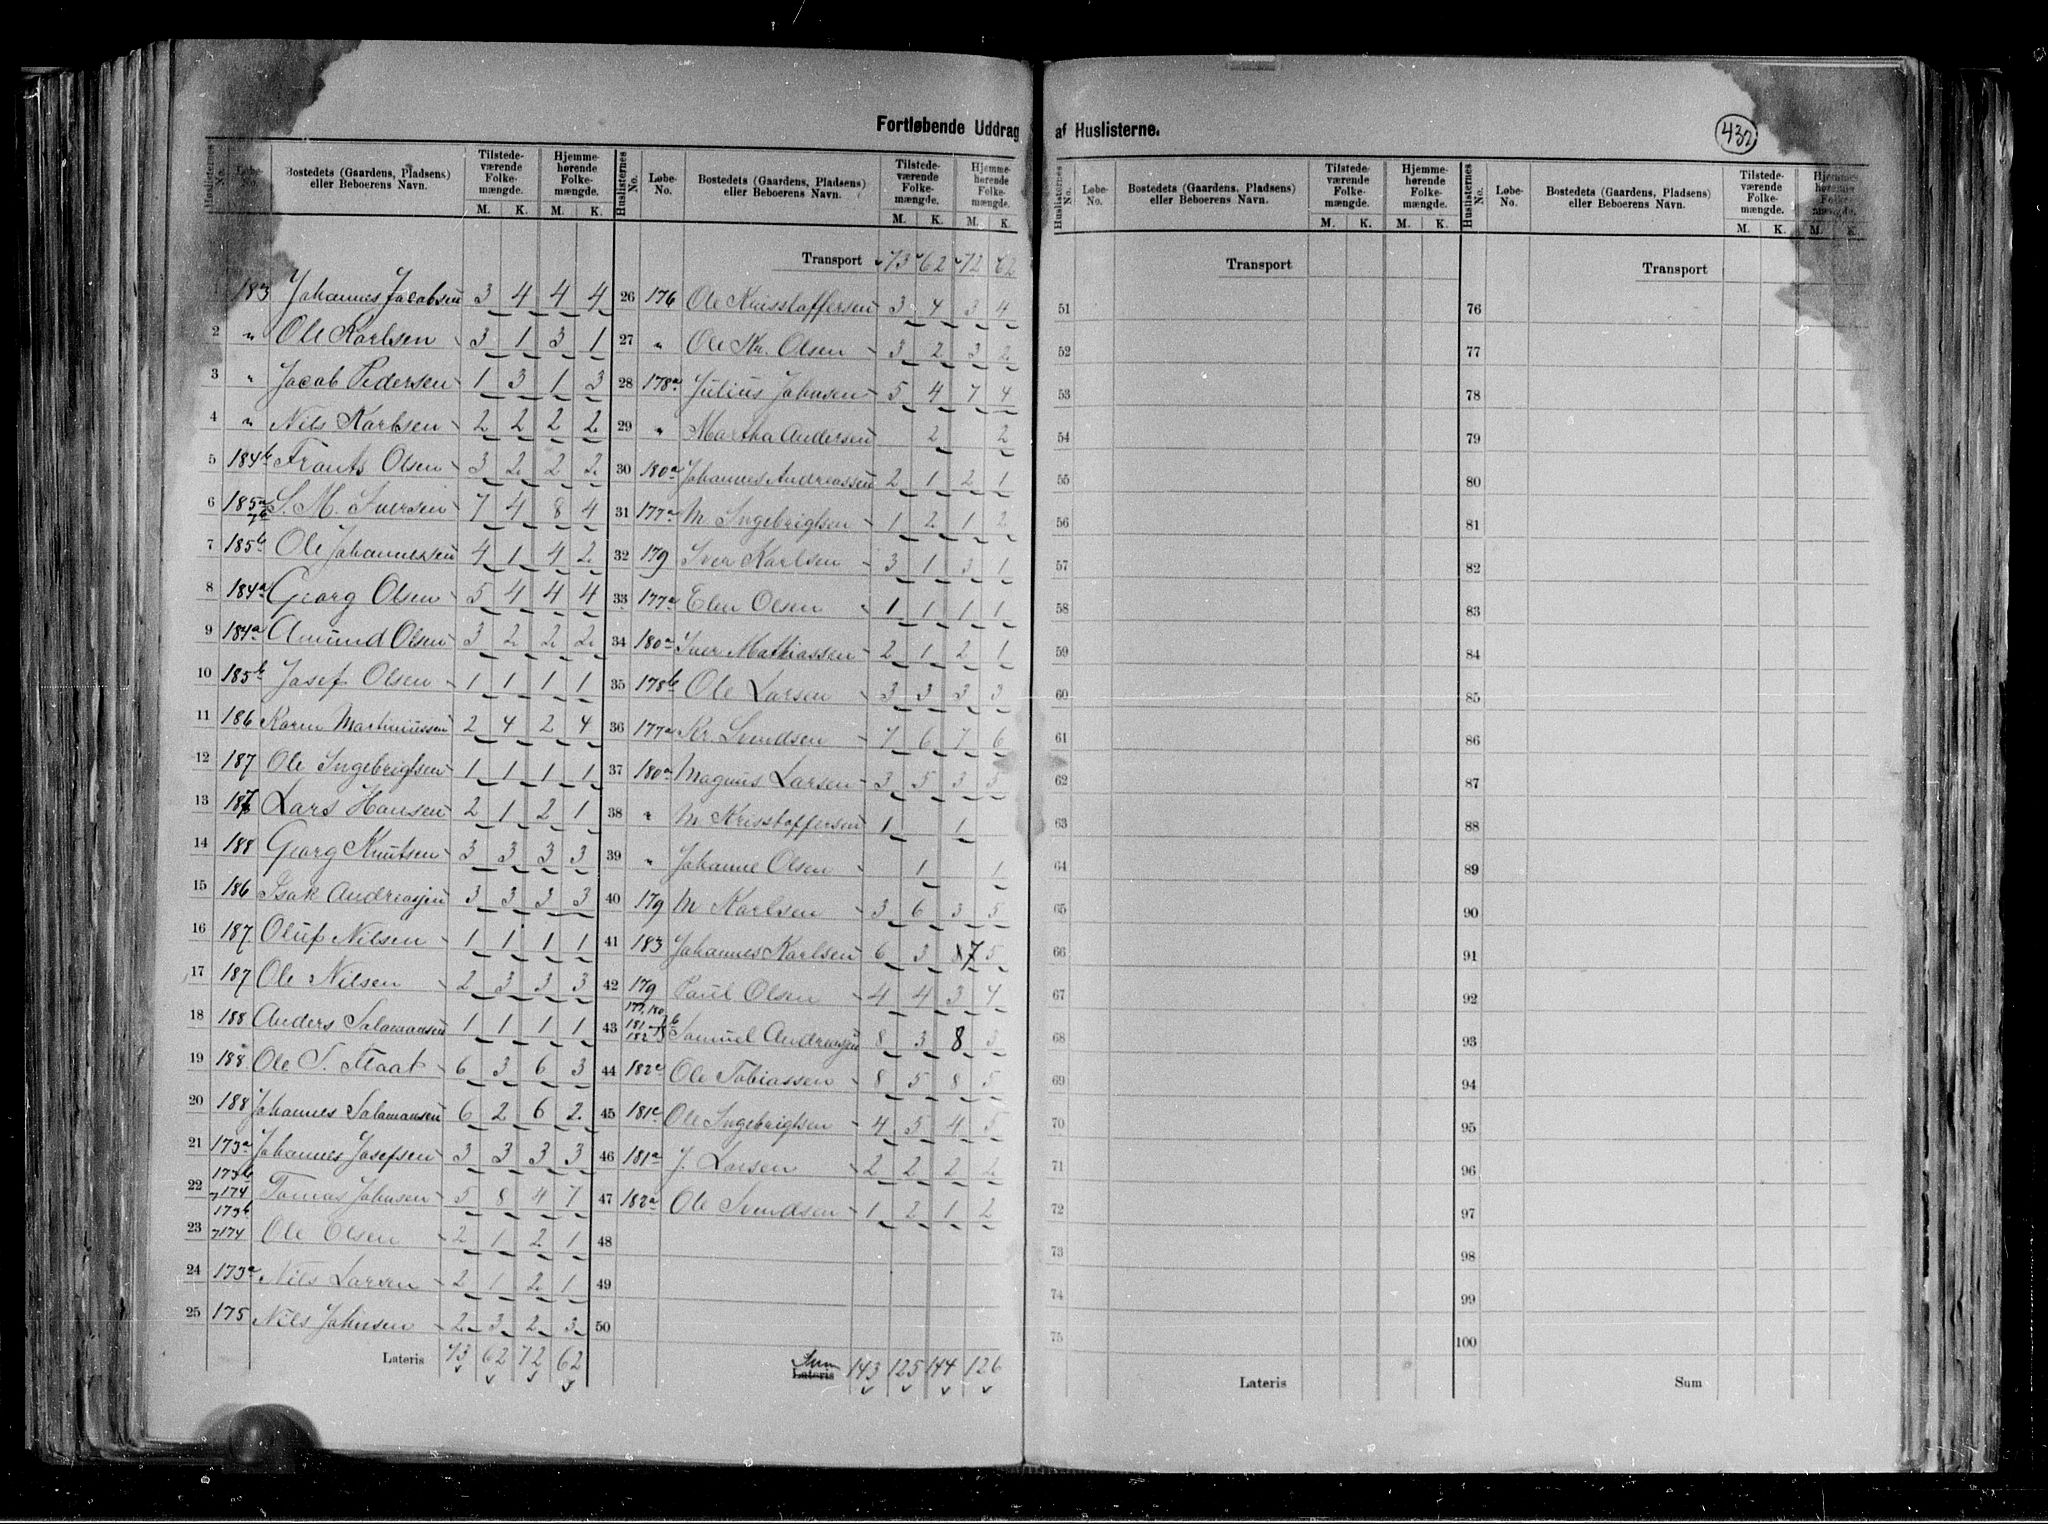 Fortløbende Uddrag af Huslisterne.
432
Huslisternes No. Løbe-No. Bostedets (Gaardens, Pladsens) eller Beboerens Navn. Tilstedeværende Folkemængde. M. K. Hjemmehørende Folkemængde. M. K.
183 Johannes Jacobsen 3 4 4 4
2 " Ole Karlsen 3 1 3 1
3 " Jacob Pedersen 1 3 1 3
4 " Nils Karlsen 2 2 2 2
5 184b Frants Olsen 3 2 2 2
6 185a S. M. Iversen 7 4 8 4
7 185b Ole Johannessen 4 1 4 2
8 184a Georg Olsen 5 4 4 4
9 184a Amund Olsen 3 2 2 2
10 185b Josef Olsen 1 1 1 1
11 186 Karen Martinussen 2 4 2 4
12 187 Ole Ingebrigtsen 1 1 1 1
13 187 Lars Hansen 2 1 2 1
14 188 Georg Knutsen 3 3 3 3
15 186 Isak Andreasjen 3 3 3 3
16 187 Oluf Nilsen 1 1 1 1
17 187 Ole Nilsen 2 3 3 3
18 188 Anders Salamonsen 1 1 1 1
19 188 Ole T. Staat 6 3 6 3
20 188 Johannes Salamonsen 6 2 6 2
21 173a Johannes Josefsen 3 3 3 3
22 173b 174 Tomas Johnsen 5 8 4 7
23 173b 174 Ole Olsen 2 1 2 1
24 173a Nils Larsen 2 1 2 1
25 175 Nils Johnsen 2 3 2 3
Lateris 73 62 72 62
Huslisternes No. Løbe-No. Bostedets (Gaardens, Pladsens) eller Beboerens Navn. Tilstedeværende Folkemængde. M. K. Hjemmehørende Folkemængde. M. K.
Transport 73 62 72 62
26 176 Ole Kristoffersen 3 4 3 4
27 " Ole Kr. Olsen 3 2 3 2
28 178a Julius Johnsen 5 4 7 4
29 " Martha Andersen 2 2
30 180a Johannes Andreassen 2 1 2 1
31 177a M Ingebrigtsen 1 2 1 2
32 179 Iver Karlsen 3 1 3 1
33 177a Elen Olsen 1 1 1 1
34 180a Iver Mathiassen 2 1 2 1
35 178b Ole Larsen 3 3 3 3
36 177a Kr. Svendsen 7 6 7 6
37 180a Magnus Larsen 3 5 3 5
38 " M Kristoffersen 1 1
39 " Johanne Olsen 1 1
40 179 M Karlsen 3 6 3 5
41 183 Johannes Karlsen 6 3 8 7 5
42 179 Paul Olsen 4 4 3 4
43 181 182 Samuel Andreasjen 8 3 8 3
44 182c Ole Tobiassen 8 5 8 5
45 181c Ole Ingebrigtsen 4 5 4 5
46 181a J. Larsen 2 2 2 2
47 182a Ole Svendsen 1 2 1 2
48
49
50
Sum Lateris 143 125 144 126
Huslisternes No. Løbe-No. Bostedets (Gaardens, Pladsens) eller Beboerens Navn. Tilstedeværende Folkemængde. M. K. Hjemmehørende Folkemængde. M. K.
Transport
51
52
53
54
55
56
57
58
59
60
61
62
63
64
65
66
67
68
69
70
71
72
73
74
75
Lateris
Huslisternes No. Løbe-No. Bostedets (Gaardens, Pladsens) eller Beboerens Navn. Tilstedeværende Folkemængde. M. K. Hjemmehørende Folkemængde. M. K.
Transport
76
77
78
79
80
81
82
83
84
85
86
87
88
89
90
91
92
93
94
95
96
97
98
99
100
Sum